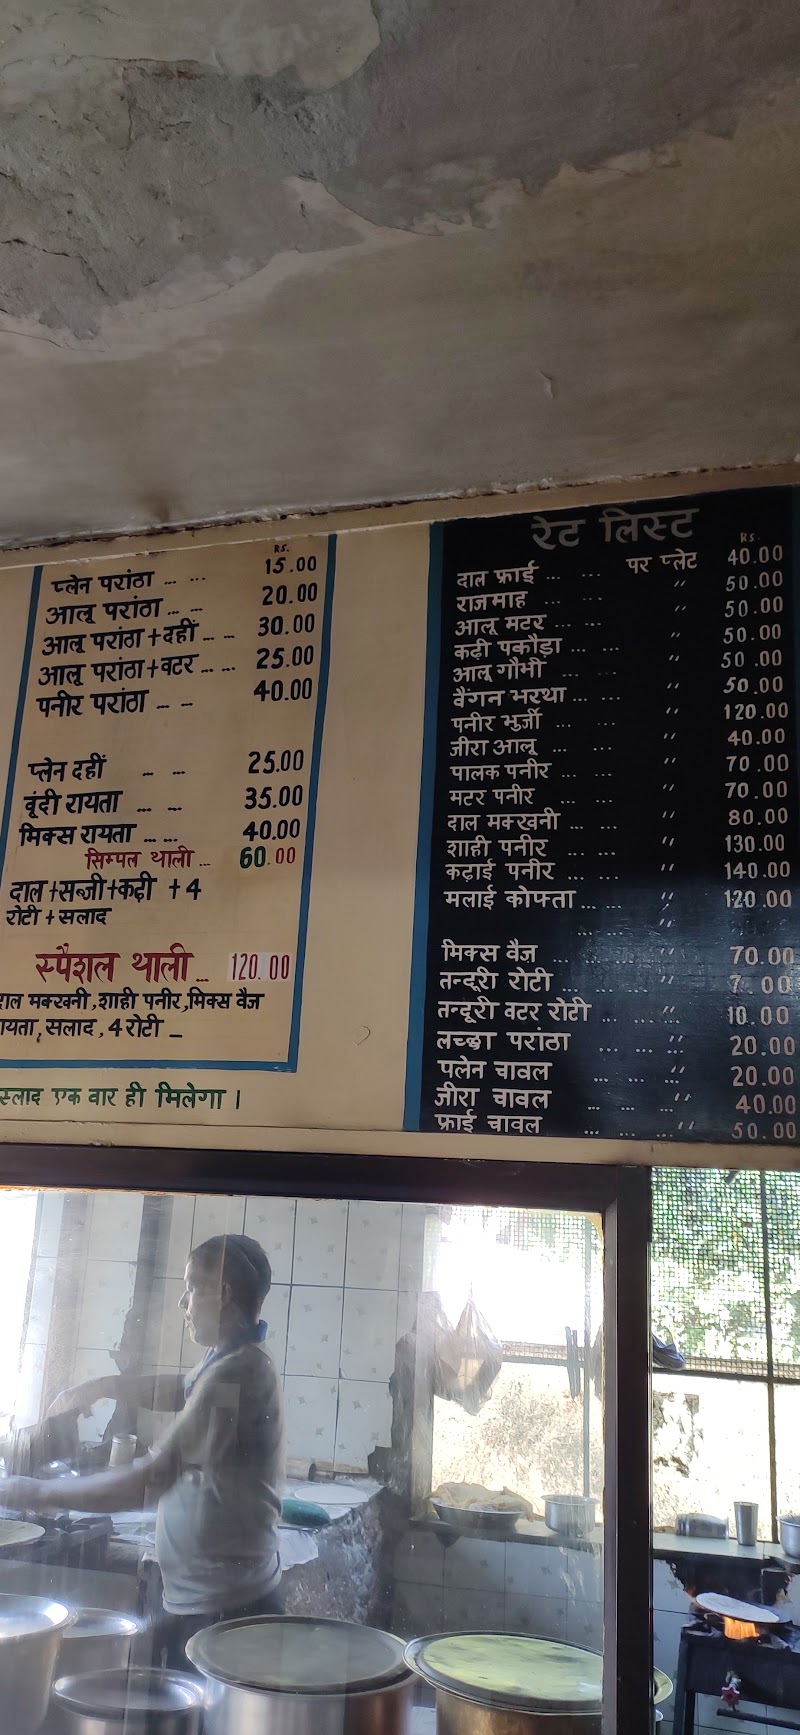 Rs.
प्लेन परांठा ... ... 15.00
आलू परांठा ... ... 20.00
आलू परांठा+दहीं ... ... 30.00
आलू परांठा+वटर ... ... 25.00
पनीर परांठा ... ... 40.00
प्लेन दहीं ... ... 25.00
वूंदी रायता ... ... 35.00
मिक्स रायता ... ... 40.00
सिम्पल थाली ... 60.00
दाल+सब्जी+कढ़ी +4
रोटी+सलाद
स्पैशल थाली ... 120.00
दाल मक्खनी,शाही पनीर,मिक्स वैज
रायता,सलाद,4 रोटी _
स्लाद एक वार ही मिलेगा।
रेट लिस्ट
Rs.
दाल फ्राई ... ... पर प्लेट 40.00
राजमाह ... ... " 50.00
आलू मटर ... ... " 50.00
कढ़ी पकौड़ा ... ... " 50.00
आलू गौभी ... ... " 50.00
वैंगन भरथा ... ... " 50.00
पनीर भुर्जी ... ... " 120.00
जीरा आलू ... ... " 40.00
पालक पनीर ... ... " 70.00
मटर पनीर ... ... " 70.00
दाल मक्खनी ... ... " 80.00
शाही पनीर ... ... " 130.00
कढ़ाई पनीर ... ... " 140.00
मलाई कोफ्ता ... ... " 120.00
... ... "
मिक्स वैज ... ... " 70.00
तन्दूरी रोटी ... ... " 7.00
तन्दूरी वटर रोटी ... ... " 10.00
लच्छा परांठा ... ... " 20.00
पलेन चावल ... ... " 20.00
जीरा चावल ... ... " 40.00
फ्राई चावल ... ... ... " 50.00